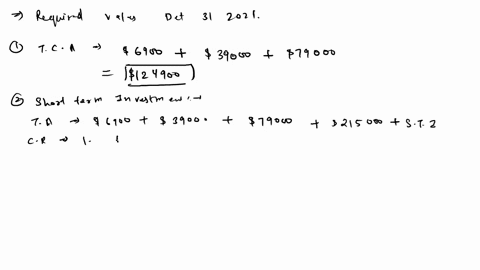 → Required values Oct 31 2021.
① T.C.A → $6900 + $39000 + $79000
= $124900
② Short term Investment
T.A → $6900 + $39000 + $79000 + $215000 + S.T.I
C.R → 1.